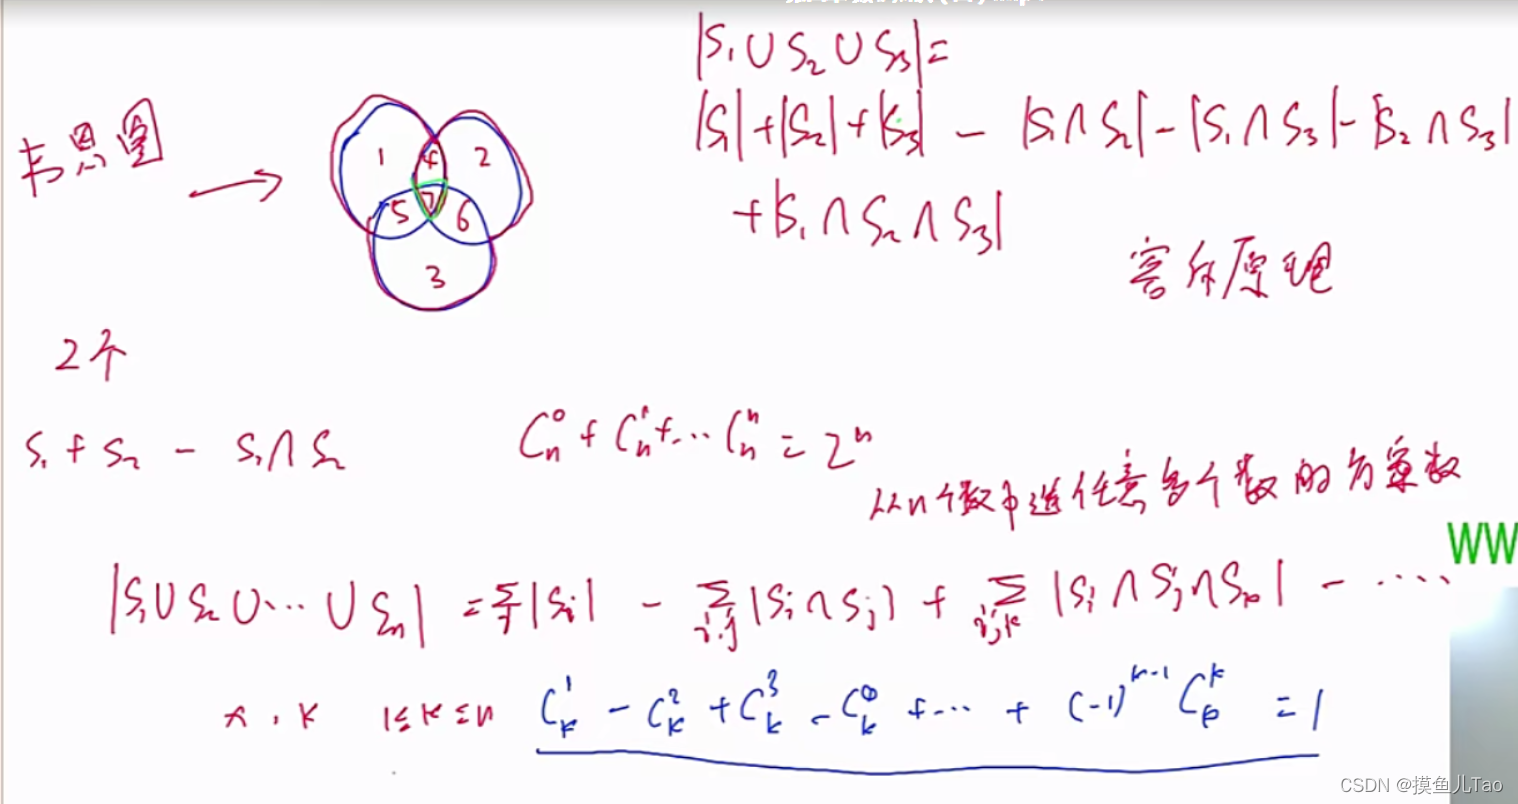 |S₁∪S₂∪S₃|=
|S₁|+|S₂|+|S₃| - |S₁∩S₂|-|S₁∩S₃|-|S₂∩S₃|
+|S₁∩S₂∩S₃|
韦恩图
1 4 2
5 7 6
3
容斥原理
2个
S₁+S₂ - S₁∩S₂
Cₙ⁰+Cₙ¹+…Cₙⁿ=2ⁿ
从n个数中选任意多个数的方案数
WW
|S₁∪S₂∪…∪Sₙ| =Σᵢ|Sᵢ| - Σᵢ,ⱼ|Sᵢ∩Sⱼ| + Σᵢ,ⱼ,ₖ|Sᵢ∩Sⱼ∩Sₖ| - ….
x,k 1≤k≤n Cₖ¹-Cₖ²+Cₖ³-Cₖ +…+(-1)ᵏ⁻¹Cₖᵏ=1
CSDN @摸鱼儿Tao